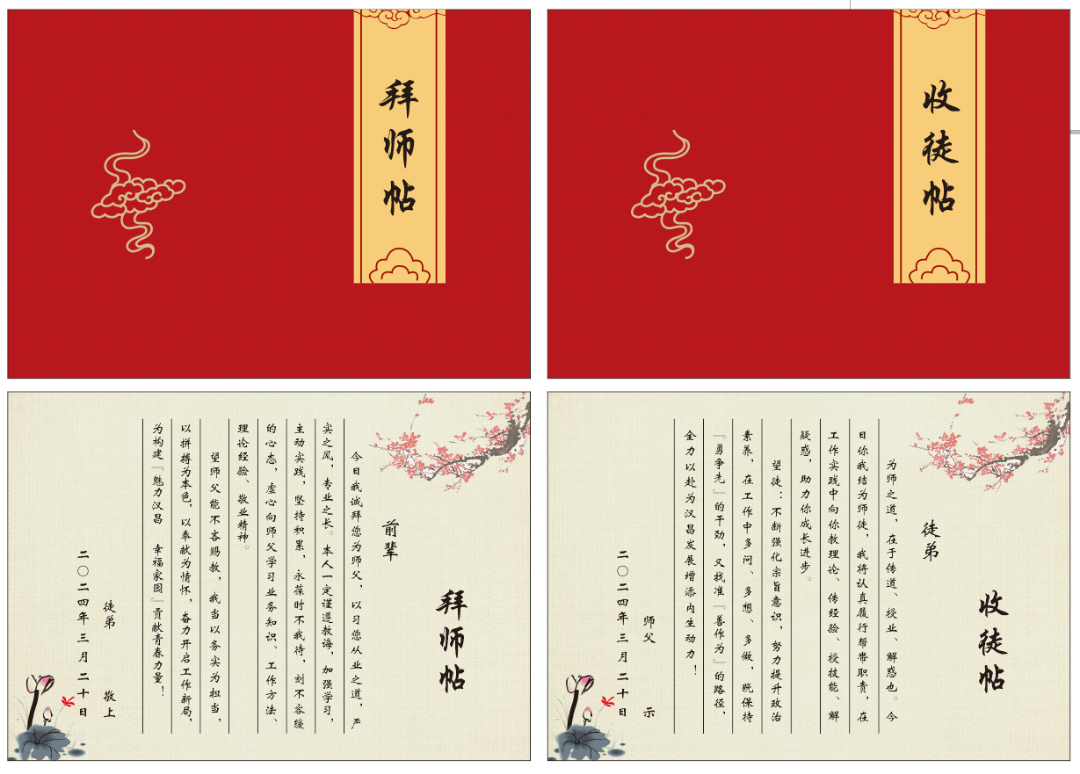 拜师帖
收徒帖
拜师帖
前辈
今日我诚拜您为师父，以习您从业之道，严
实之风，专业之长。本人一定谨遵教诲，加强学习，
主动实践，坚持积累，永葆时不我待，刻不容缓
的心态，虚心向师父学习业务知识、工作方法、
理论经验、敬业精神。
望师父能不吝赐教，我当以务实为担当，
以拼搏为本色，以奉献为情怀，奋力开启工作新局，
为构建『魅力汉昌 幸福家园』贡献青春力量！
徒弟 敬上
二〇二四年三月二十日
收徒帖
徒弟
为师之道，在于传道、授业、解惑也。今
日你我结为师徒，我将认真履行帮带职责，在
工作实践中向你教理论、传经验、授技能、解
疑惑，助力你成长进步。
望徒：不断强化宗旨意识，努力提升政治
素养，在工作中多问、多想、多做，既保持
『勇争先』的干劲，又找准『善作为』的路径，
全力以赴为汉昌发展增添内生动力！
师父 示
二〇二四年三月二十日